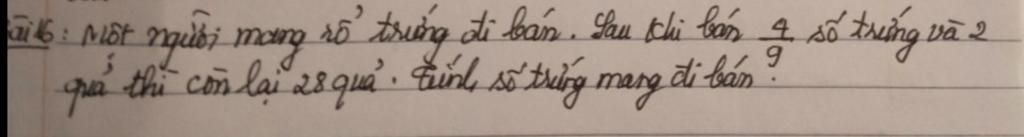 ài 16: Một người mang rổ trứng đi bán. Sau khi bán 4/9 số trứng và 2
quả thì còn lại 28 quả. Tính số trứng mang đi bán?